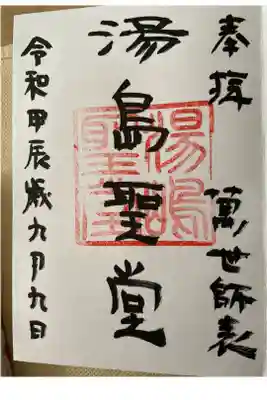 奉拝 萬世師表
湯島聖堂
湯嶋聖堂
令和甲辰歳九月九日